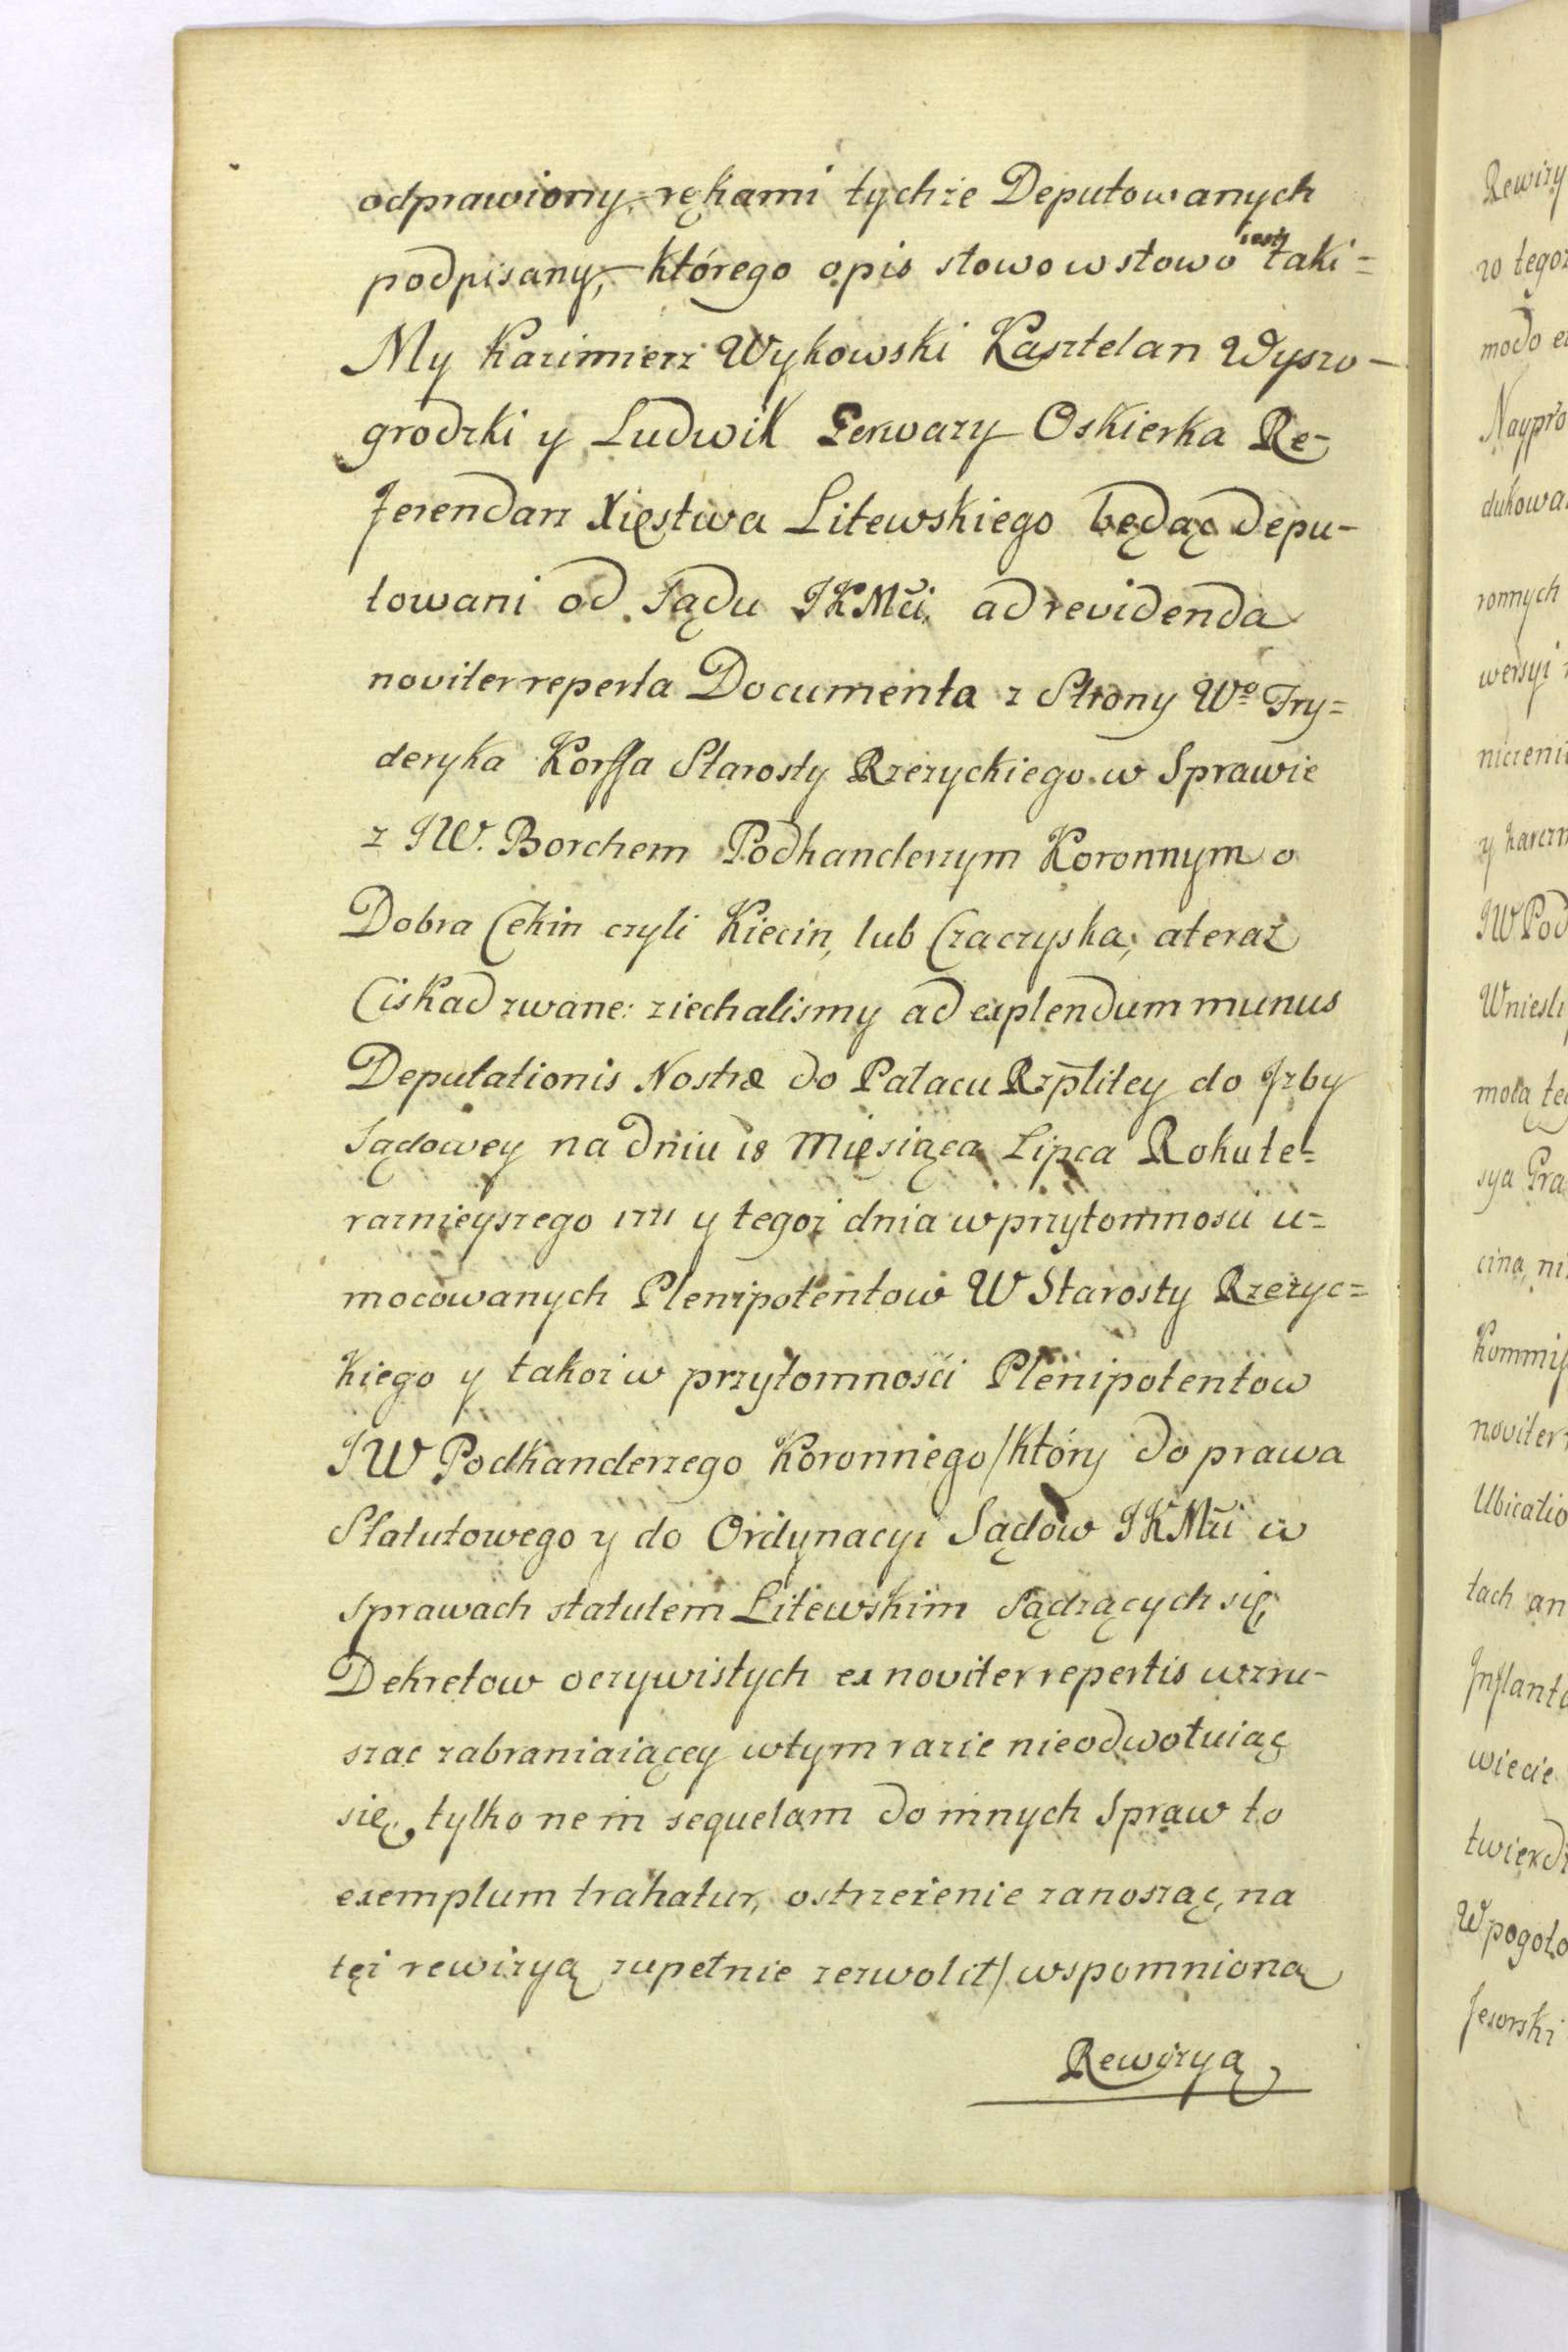 odprawiony, rękami tychże Deputowanych
podpisany, którego opis słowo w słowo iest taki =
My Kazimierz Wykowski Kasztelan Wyszo-
grodzki y Ludwik Gerwazy Oskierka Re-
ferendarz Xięstwa Litewskiego będąc depu-
towani od Sądu JKMći, ad revidenda
noviter reperta Documenta z Strony Wo Fry=
deryka Korffa Starosty Rzeżyckiego w Sprawie
z JW. Borchem Podkanclerzym Koronnym o
Dobra Cekin czyli Kiecin, lub Czaczyska, a teraz
Ciskad zwane: ziechalismy ad explendum munus
Deputationis Nostræ do Pałacu Rzplitey do Izby
Sądowey na dniu 18 Miesiąca Lipca Roku te=
raznieyszego 1771 y tegoż dnia w przytomnosci u=
mocowanych Plenipotentow W Starosty Rzeżyc=
kiego y takoż w przytomnośći Plenipotentow
JW Podkanclerzego Koronnego /który do prawa
Statutowego y do Ordynacyi Sądow JKMći w
sprawach statutem Litewskim Sądzących się,
Dekretow oczywistych ex noviter repertis wzru-
szac zabraniaiącey w tym razie nieodwołuiąc
się, tylko ne in sequelam do innych Spraw to
exemplum trahatur, ostrzeżenie zanosząc, na
tęż rewizyą zupełnie zezwolił/ wspomnioną
Rewizyą
Rewizy
zo tegoż
modo
Naypro
dukowa
ronnych
wersyi
niczeni
y karczm
JW Pod
Wniesli
mota te
sya Pra
cina, ni
Kommis
noviter
Ubicatio
tach an
Inflant
wiecie
twierdz
W pogoto